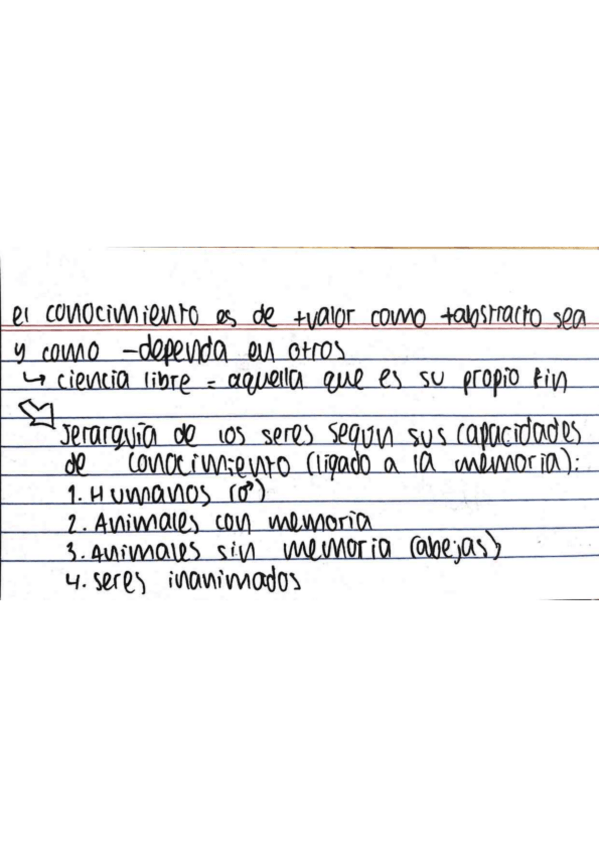 el conocimiento es de +valor como +abstracto sea
y como -dependa en otros
↳ ciencia libre = aquella que es su propio fin
Jerarquía de los seres según sus capacidades
de conocimiento (ligado a la memoria):
1. Humanos (♂)
2. Animales con memoria
3. Animales sin memoria (abejas)
4. seres inanimados